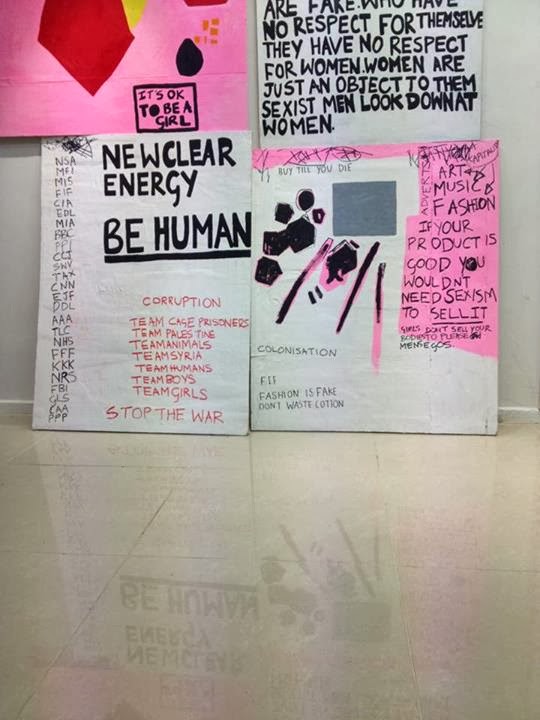 IT'S OK
TO BE A
GIRL
ARE FAKE. WHO HAVE
NO RESPECT FOR THEMSELVE
THEY HAVE NO RESPECT
FOR WOMEN. WOMEN ARE
JUST AN OBJECT TO THEM
SEXIST MEN LOOK DOWN AT
WOMEN.
NSA
MFI
MI5
FIF
CIA
EDL
MIA
BBC
PPI
CCI
SNV
TAX
CNN
EJF
DDL
AAA
TLC
NHS
FFF
KKK
NRS
FBI
GLS
CAA
PPP
NEWCLEAR
ENERGY
BE HUMAN
CORRUPTION
TEAM CAGE PRISONERS
TEAM PALESTINE
TEAM ANIMALS
TEAM SYRIA
TEAM HUMANS
TEAM BOYS
TEAM GIRLS
STOP THE WAR
BUY TILL YOU DIE
COLONISATION
F.I.F
FASHION IS FAKE
DONT WASTE COTION
ART
MUSIC
FASHION
IF YOUR
PRODUCT IS
GOOD YOU
WOULDNT
NEED SEXISM
TO SELL IT
GIRLS DON'T SELL YOUR
BODIES TO PLEASE
MENS EGOS.